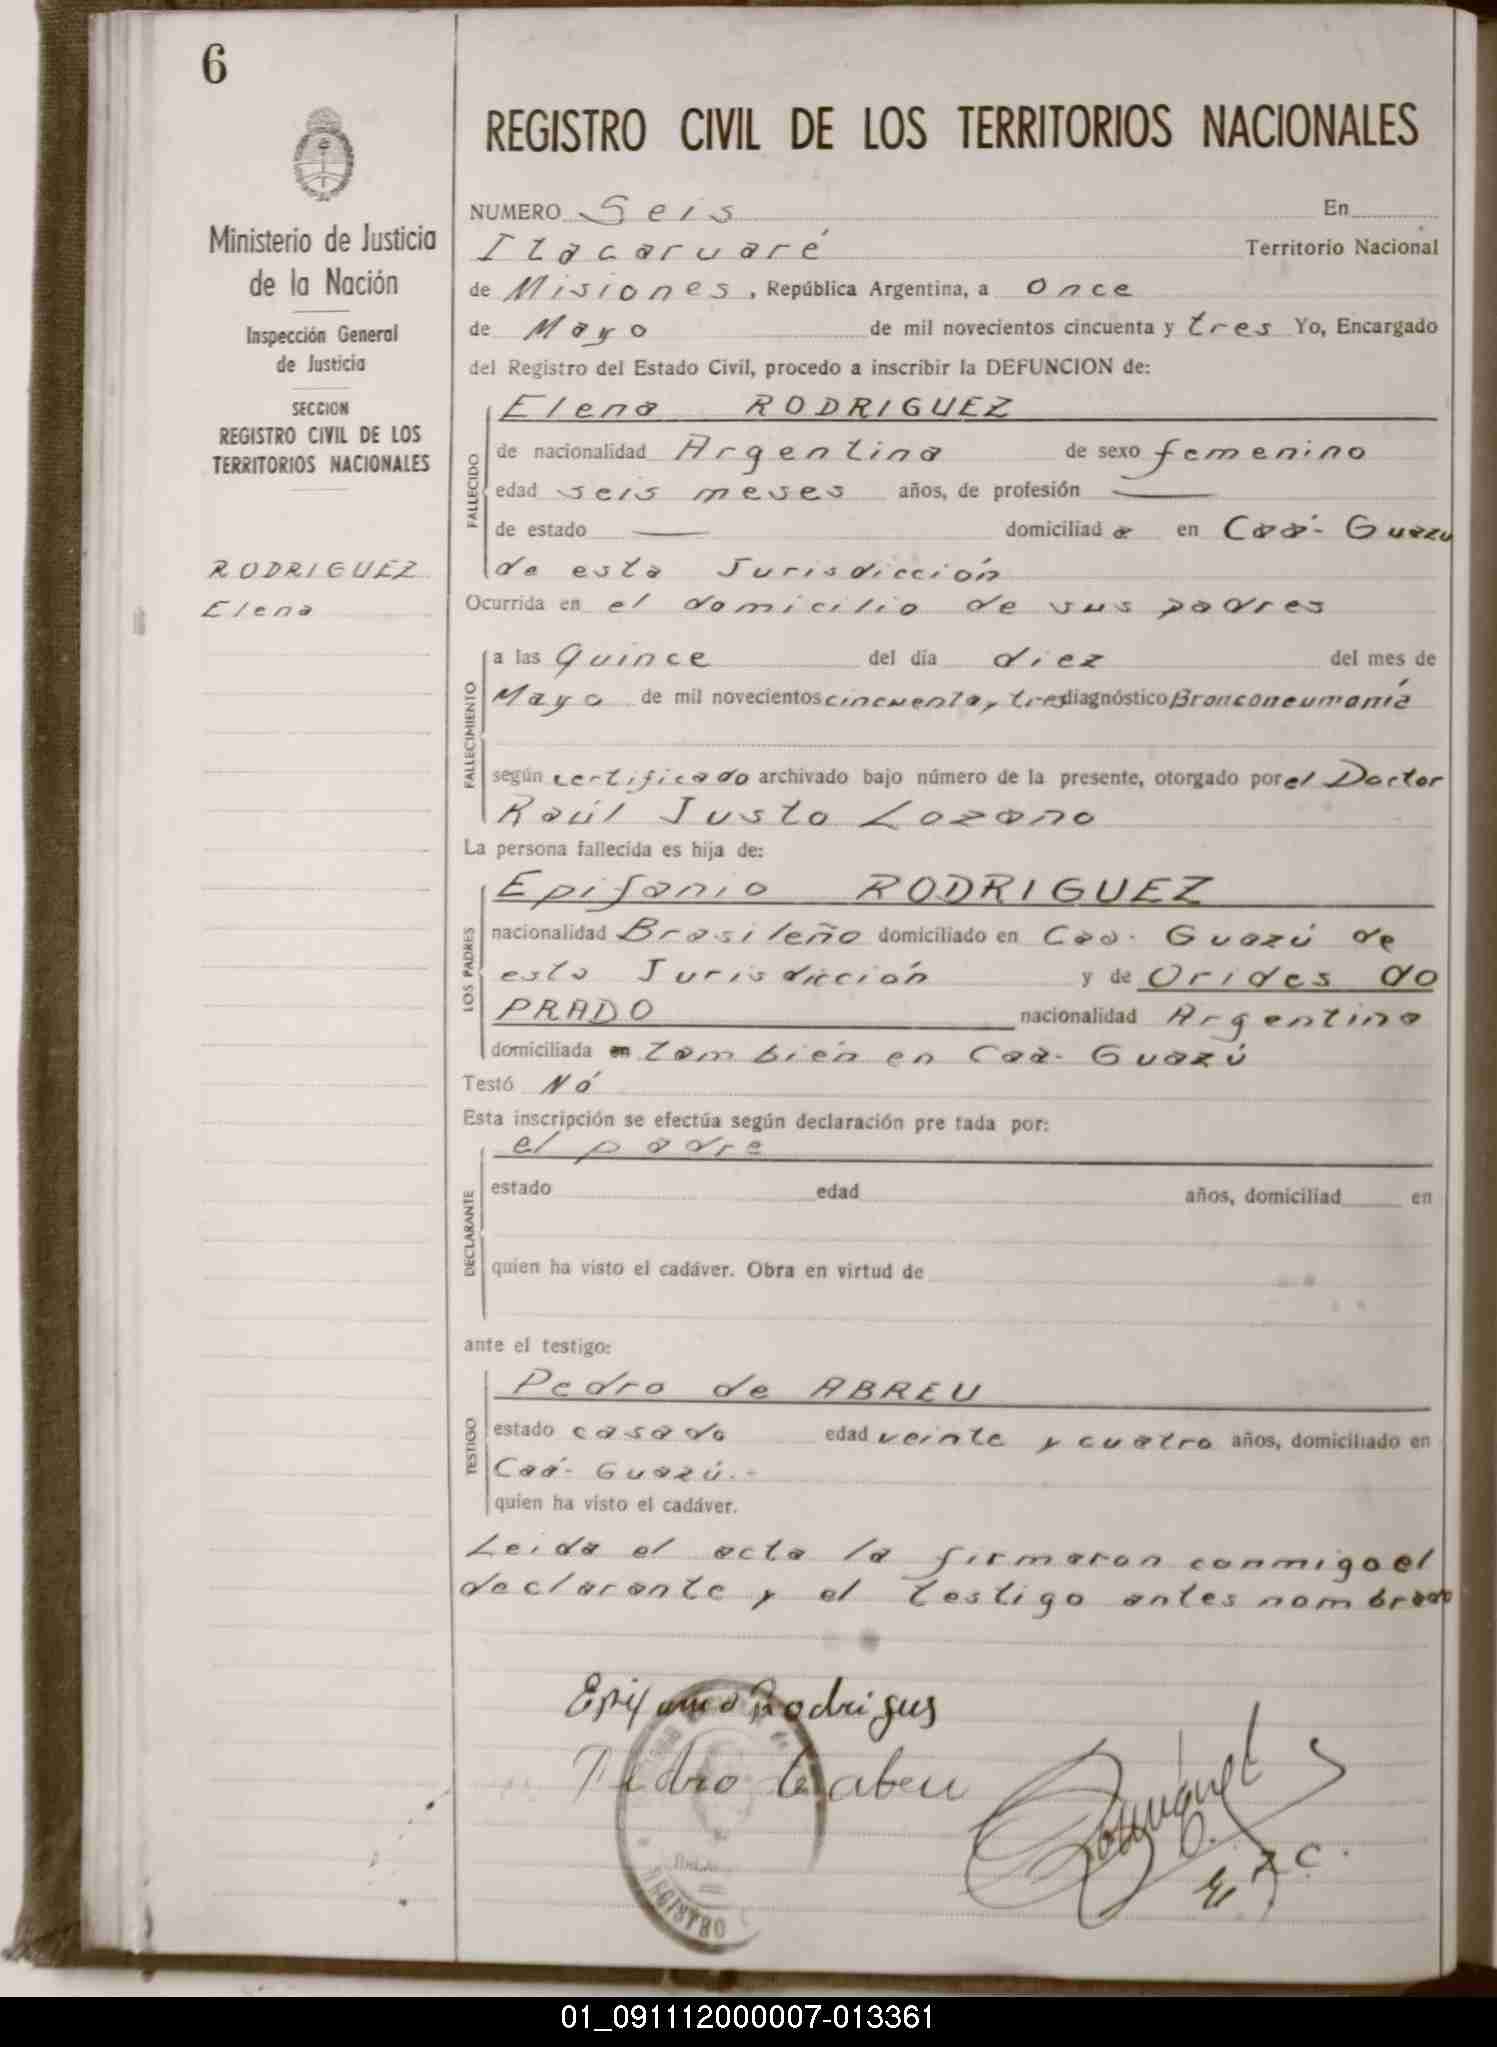 6
Ministerio de Justicia
de la Nación
Inspección General
de Justicia
SECCION
REGISTRO CIVIL DE LOS
TERRITORIOS NACIONALES
RODRIGUEZ
Elena
REGISTRO CIVIL DE LOS TERRITORIOS NACIONALES
NUMERO Seis En
Itacaruaré Territorio Nacional
de Misiones, República Argentina, a once
de Mayo de mil novecientos cincuenta y tres Yo, Encargado
del Registro del Estado Civil, procedo a inscribir la DEFUNCION de:
FALLECIDO
Elena RODRIGUEZ
de nacionalidad Argentina de sexo femenino
edad seis meses años, de profesión —
de estado — domiciliada en Caá-Guazú
de esta Jurisdicción
Ocurrida en el domicilio de sus padres
FALLECIMIENTO
a las Quince del día diez del mes de
Mayo de mil novecientos cincuenta y tres diagnóstico Bronconeumanía
según certificado archivado bajo número de la presente, otorgado por el Doctor
Raúl Justo Lozano
La persona fallecida es hija de:
LOS PADRES
Epifanio RODRIGUEZ
nacionalidad Brasileño domiciliado en Caa-Guazú de
esta Jurisdicción y de Orides do
PRADO nacionalidad Argentina
domiciliada en también en Caa-Guazú
Testó Nó
Esta inscripción se efectúa según declaración pre tada por:
DECLARANTE
el padre
estado edad años, domiciliad en
quien ha visto el cadáver. Obra en virtud de
ante el testigo:
TESTIGO
Pedro de ABREU
estado casado edad veinte y cuatro años, domiciliado en
Caá-Guazú.-
quien ha visto el cadáver.
Leida el acta la firmaron conmigo el
declarante y el testigo antes nombrado
Epifanio Rodrigus
Pedro abeu
E. R. C.
REGISTRO
01_091112000007-013361